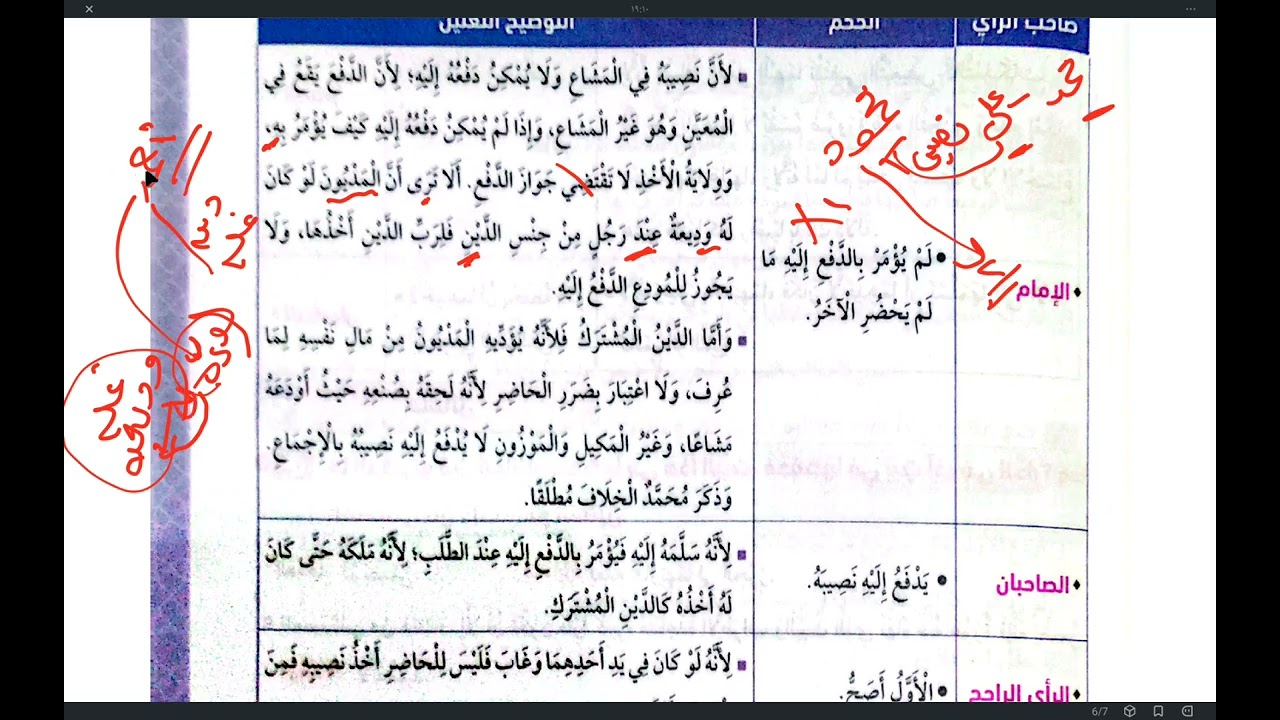 ١٩:١٠
صاحب الرأي
الحكم
التوضيح التعليل
الإمام
لَمْ يُؤْمَرْ بِالدَّفْعِ إِلَيْهِ مَا
لَمْ يَحْضُرِ الْآخَرُ.
لِأَنَّ نَصِيبَهُ فِي الْمَشَاعِ وَلَا يُمْكِنُ دَفْعُهُ إِلَيْهِ؛ لِأَنَّ الدَّفْعَ يَقَعُ فِي
الْمُعَيَّنِ وَهُوَ غَيْرُ الْمَشَاعِ، وَإِذَا لَمْ يُمْكِنْ دَفْعُهُ إِلَيْهِ كَيْفَ يُؤْمَرُ بِهِ،
وَوِلَايَةُ الْأَخْذِ لَا تَقْتَضِي جَوَازَ الدَّفْعِ. أَلَا تَرَى أَنَّ الْمَدْيُونَ لَوْ كَانَ
لَهُ وَدِيعَةٌ عِنْدَ رَجُلٍ مِنْ جِنْسِ الدَّيْنِ فَلِرَبِّ الدَّيْنِ أَخْذُهَا، وَلَا
يَجُوزُ لِلْمُودِعِ الدَّفْعُ إِلَيْهِ.
وَأَمَّا الدَّيْنُ الْمُشْتَرَكُ فَلِأَنَّهُ يُؤَدِّيهِ الْمَدْيُونُ مِنْ مَالِ نَفْسِهِ لِمَا
عُرِفَ، وَلَا اعْتِبَارَ بِضَرَرِ الْحَاضِرِ لِأَنَّهُ لَحِقَهُ بِصُنْعِهِ حَيْثُ أَوْدَعَهُ
مَشَاعًا، وَغَيْرُ الْمَكِيلِ وَالْمَوْزُونِ لَا يُدْفَعُ إِلَيْهِ نَصِيبُهُ بِالْإِجْمَاعِ.
وَذَكَرَ مُحَمَّدٌ الْخِلَافَ مُطْلَقًا.
الصاحبان
يَدْفَعُ إِلَيْهِ نَصِيبَهُ.
لِأَنَّهُ سَلَّمَهُ إِلَيْهِ فَيُؤْمَرُ بِالدَّفْعِ إِلَيْهِ عِنْدَ الطَّلَبِ؛ لِأَنَّهُ مَلَكَهُ حَتَّى كَانَ
لَهُ أَخْذُهُ كَالدَّيْنِ الْمُشْتَرَكِ.
الرأي الراجح
الْأَوَّلُ أَصَحُّ.
لِأَنَّهُ لَوْ كَانَ فِي يَدِ أَحَدِهِمَا وَغَابَ فَلَيْسَ لِلْحَاضِرِ أَخْذُ نَصِيبِهِ فَمِنَ
6/7